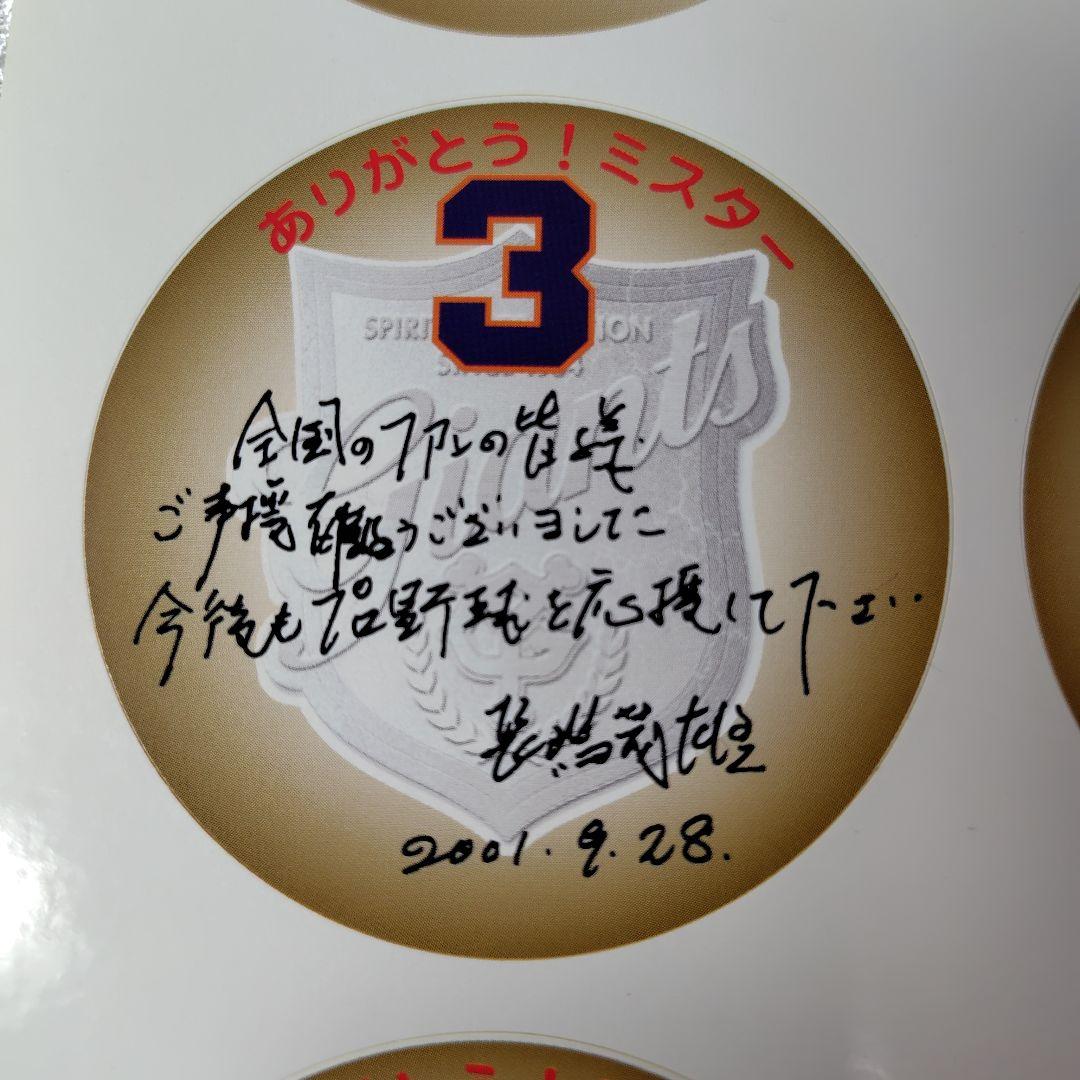 ありがとう!ミスター
3
SPIRI ION
Giants
全国のファンの皆様
ご声援有難うございました
今後もプロ野球を応援して下さい
長嶋茂雄
2001.9.28.